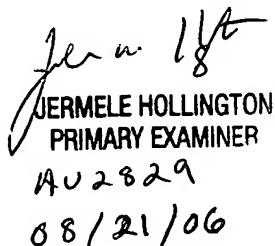 JERMELE HOLLINGTON
PRIMARY EXAMINER
AU2829
08/21/06